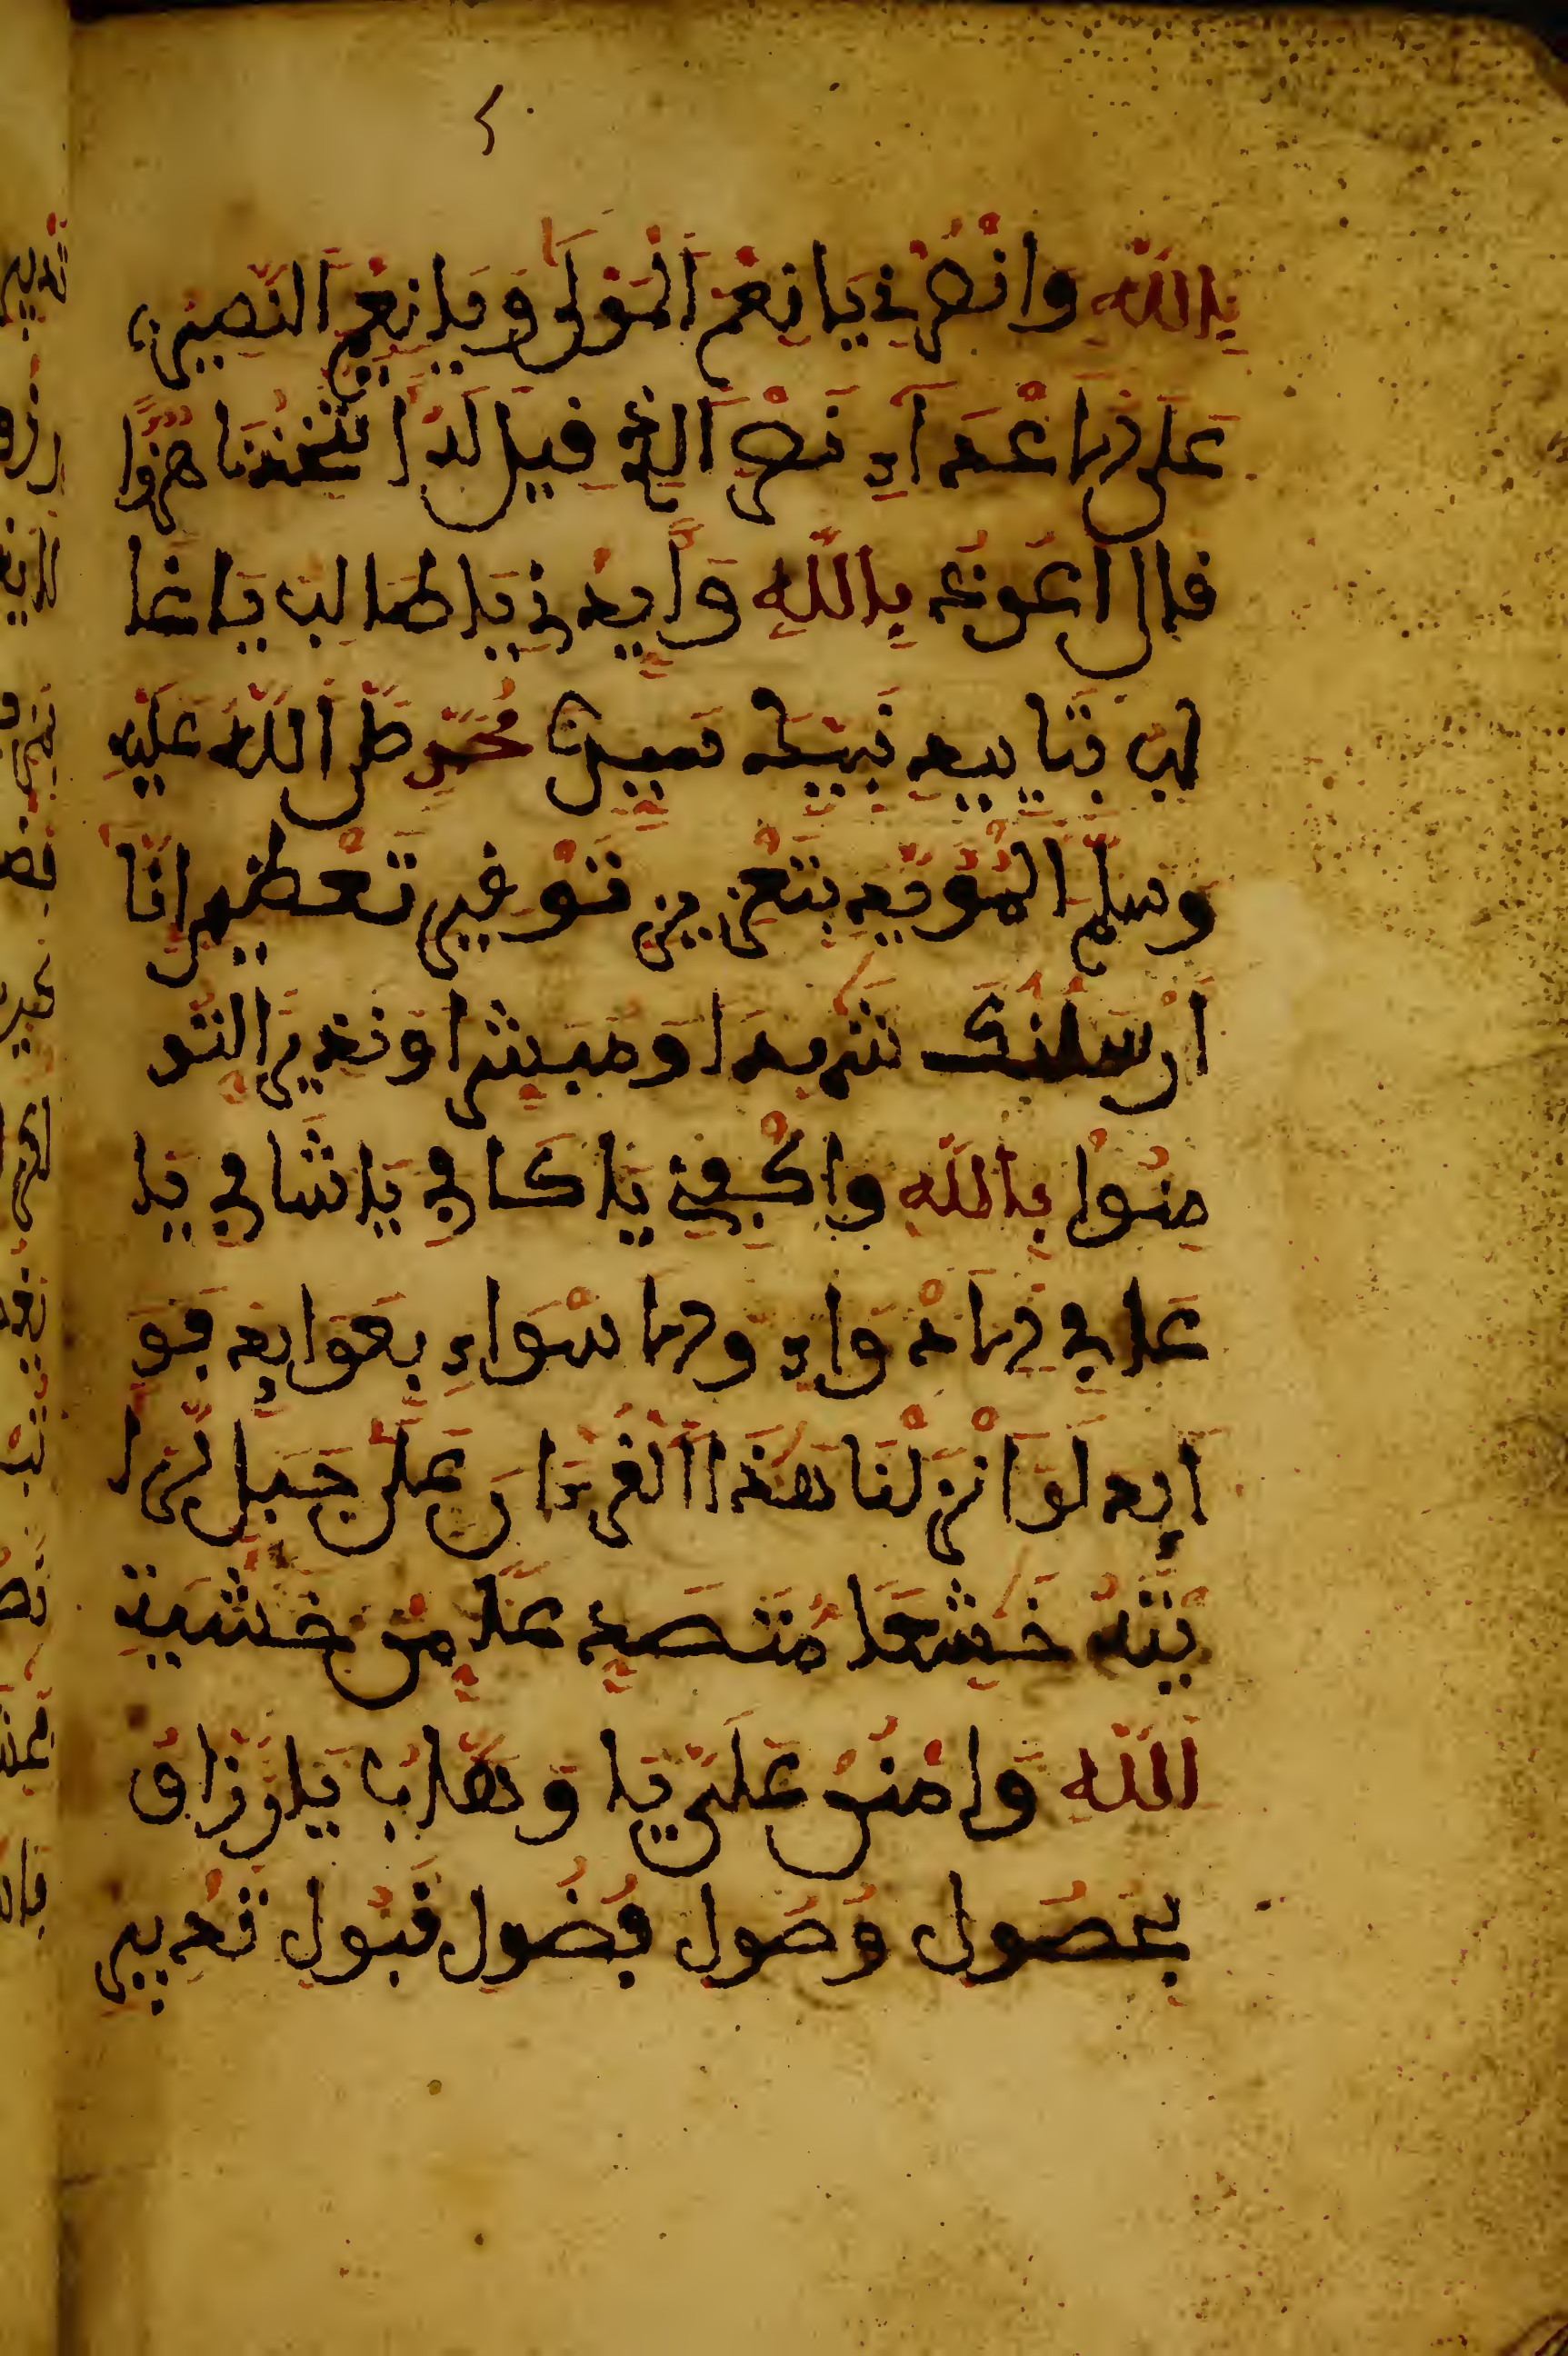 ٤
بِاللَّهِ وَانْصُرْنِي يَا نِعْمَ الْمَوْلَى وَيَا نِعْمَ النَّصِير
عَلَى الاعْدَآءِ نَصْرَ الذِى قِيلَ لَهُ اتَتَّخِذُنَا هُزُؤًا
قال اعُوذُ بِاللَّهِ وَأَيِّدْنِي يَا طَالِبُ يَا غَا
لِبُ بِتَايِيدِ نَبِيِّكَ سَيِّدِنَا مُحَمَّدٍ صَلَّى اللَّهُ عَلَيْهِ
وَسَلَّمَ الْمُؤَيَّدِ بِتَعْزِيزِ تَوْقِيرِ تَعْظِيمِ انَّا
أَرْسَلْنَكَ شَهِدَا وَمُبَشِّرًا وَنَذِيرًا لِتُو
مِنُوا بِاللَّهِ وَاكْفِنِي يَا كَافِي يَا شَافِي يَا
عَافِي الادْوَاءِ والاسْوَاءِ بِعَوَايِدِ فَوَ
ايِدِ لَوْ انْزَلْنَا هَذَا الْقُرْءَانَ عَلَى جَبَلٍ لَّرَأ
يْتَهُ خَشِعًا مُتَصَدِّعًا مِّنْ خَشْيَةِ
اللَّهِ وَامْنُنْ عَلَيَّ يَا وَهَّابُ يَا رَزَّاقُ
بِحُصُولِ وُصُولِ فُضُولِ قَبُولِ تَدْبِيرِ